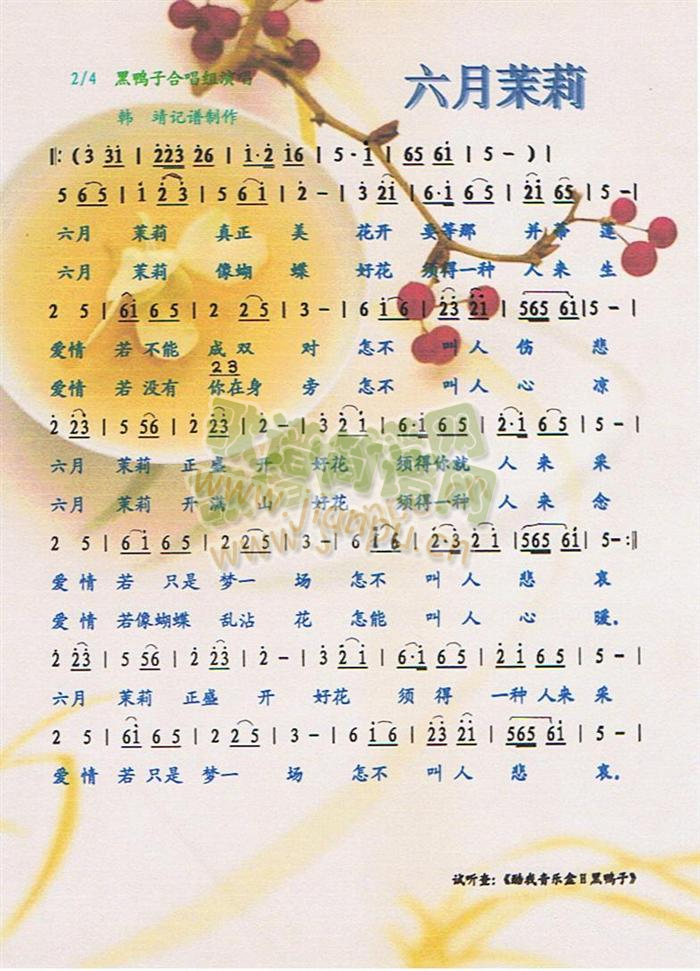 六月茉莉
2/4 黑鸭子合唱组演唱
韩 靖记谱制作
‖: (3 3̇1̇ | 2̇2̇3̇ 2̇6 | 1̇·2̇ 1̇6 | 5·1̇ | 65 61̇ | 5 - ) |
5 65 | 1̇ 2̇3̇ | 5 61̇ | 2̇ - | 3̇ 2̇1̇ | 6·1̇ 65 | 2̇1̇ 65 | 5 - |
六月 茉莉 真正 美 花开 要等那 并蒂 莲
六月 茉莉 像蝴 蝶 好花 须得一种 人来 生
2 5 | 61̇ 65 | 2 25 | 3 - | 6 1̇6 | 2̇3̇ 2̇1̇ | 565 61̇ | 5 - |
爱情 若不能 成双 对 怎不 叫人 伤 悲
23
爱情 若没有 你在身 旁 怎不 叫人 心 凉
2̇ 2̇3̇ | 5 56 | 2̇ 2̇3̇ | 2̇ - | 3̇ 2̇1̇ | 6·1̇ 65 | 2̇1̇ 65 | 5 - |
六月 茉莉 正盛 开 好花 须得你就 人来 采
六月 茉莉 开满 山 好花 须得一种 人来 念
2 5 | 61̇ 65 | 2 25 | 3 - | 6 1̇6 | 2̇·3̇ 2̇1̇ | 565 61̇ | 5 - :‖
爱情 若 只是 梦一 场 怎不 叫人 悲 哀
爱情 若像蝴蝶 乱沾 花 怎能 叫人 心 暖。
2̇ 2̇3̇ | 5 56 | 2̇ 2̇3̇ | 2̇ - | 3̇ 2̇1̇ | 6·1̇ 65 | 2̇1̇ 65 | 5 - |
六月 茉莉 正盛 开 好花 须 得 一种 人来 采
2 5 | 61̇ 65 | 2 25 | 3 - | 6 1̇6 | 2̇3̇ 2̇1̇ | 565 61̇ | 5 - |
爱情 若 只是 梦一 场 怎不 叫人 悲 哀。
试听查：《酷我音乐盒日黑鸭子》